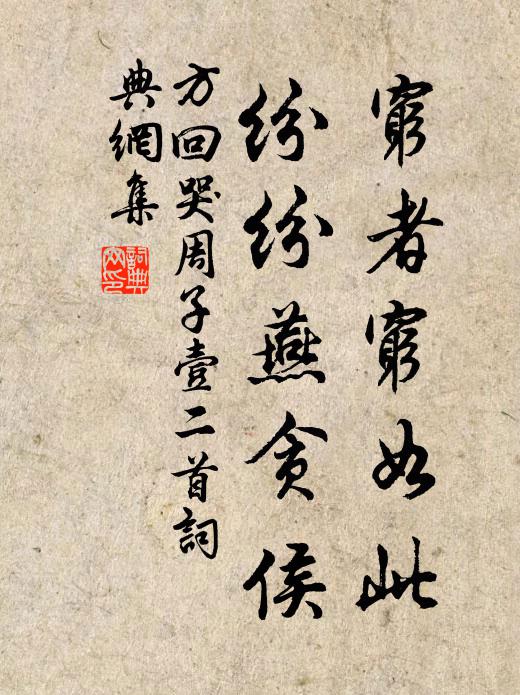 窮者窮如此
紛紛燕貪侯
方回哭周子壹二首詞
典網集
詞典
文印